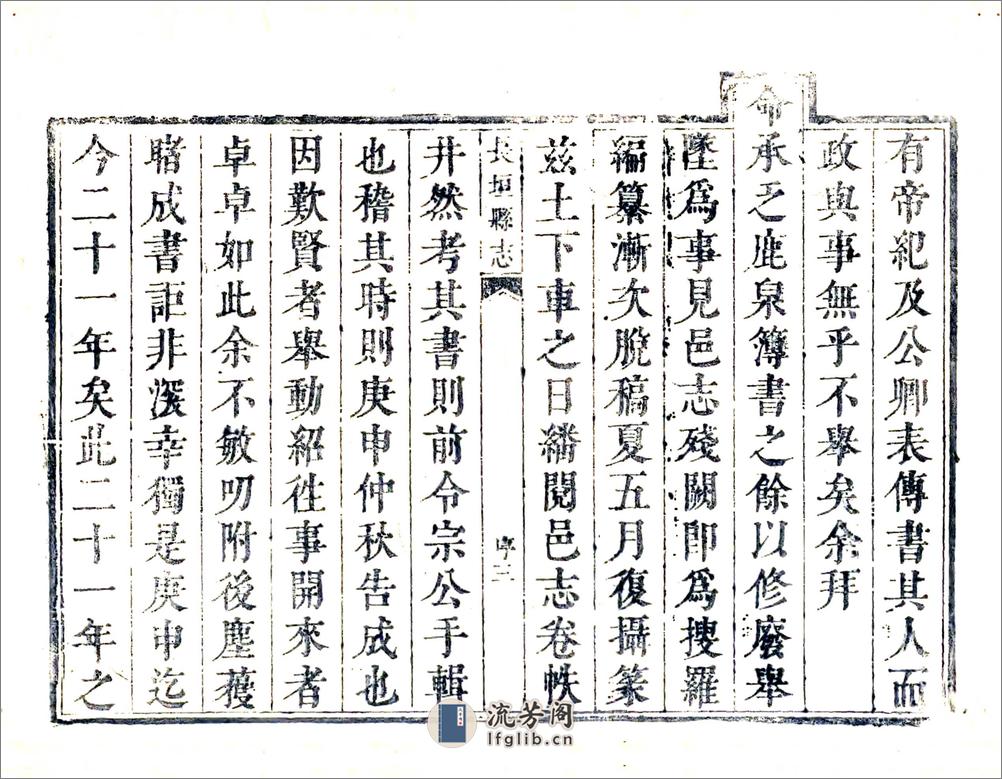 有帝紀及公卿表傳書其人而
政與事無乎不舉矣余拜
命承乏鹿泉簿書之餘以修廢舉
墜爲事見邑志殘闕即爲搜羅
編纂漸次脫稿夏五月復攝篆
茲土下車之日繙閱邑志卷帙
長垣縣志
序三
井然考其書則前令宗公于輯
也稽其時則庚申仲秋告成也
因歎賢者舉動紹徃事開來者
卓卓如此余不敏叨附後塵獲
睹成書詎非深幸獨是庚申迄
今二十一年矣此二十一年之
流芳阁
lfglib.cn